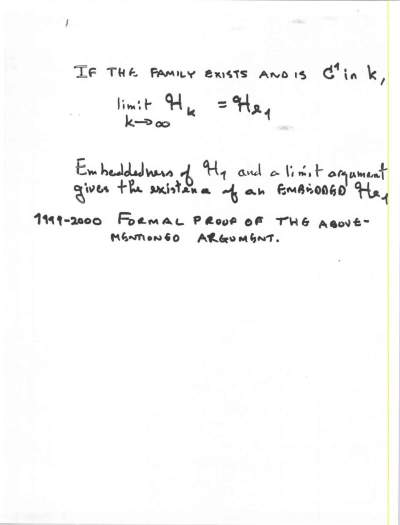 1
IF THE FAMILY EXISTS AND IS C¹ in k,
limit ℋₖ = ℋe₁
k→∞
Embeddedness of ℋ₁ and a limit argument
gives the existence of an EMBEDDED ℋe₁
1999-2000 FORMAL PROOF OF THE ABOVE-
MENTIONED ARGUMENT.